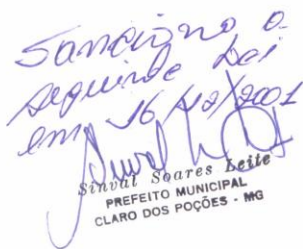 Sanciono a
seguinte Lei
em 16/12/2001
Sinval Soares Leite
PREFEITO MUNICIPAL
CLARO DOS POÇÕES - MG